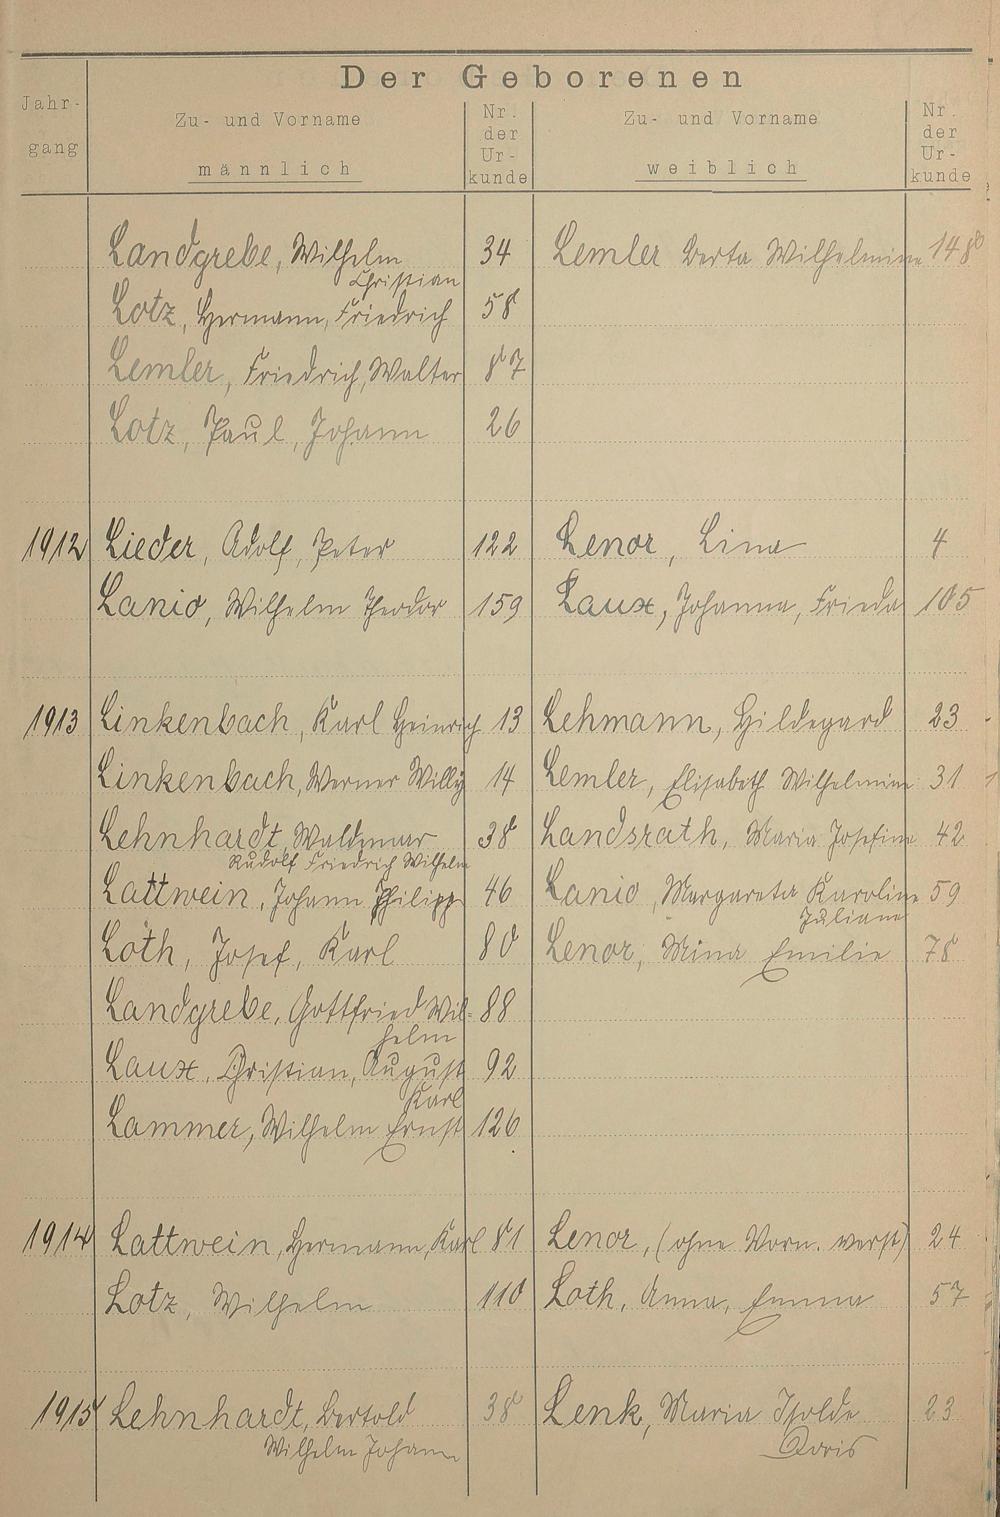 Der Geborenen
Jahr-
gang
Zu- und Vorname
männlich
Nr.
der
Ur-
kunde
Zu- und Vorname
weiblich
Nr.
der
Ur-
kunde
Landgrebe, Wilhelm 34 Lemler Berta Wilhelmine 148
Christian
Lotz, Hermann, Friedrich 58
Lemler, Friedrich, Walter 87
Lotz, Paul, Johann 26
1912 Lieder, Adolf, Peter 122 Lenor, Lina 4
Lanio, Wilhelm Theodor 159 Laux, Johanna, Frieda 105
1913 Linkenbach, Karl Heinrich 13 Lehmann, Hildegard 23
Linkenbach, Werner Willy 14 Lemler, Elisabeth Wilhelmine 31
Lehnhardt, Waldemar 38 Landsrath, Maria Josefine 42
Rudolf Friedrich Wilhelm
Lattwein, Johann Philipp 46 Lanio, Margareta Karoline 59
Juliane
Loth, Josef, Karl 80 Lenor, Mina Emilie 78
Landgrebe, Gottfried Wil- 88
helm
Laux, Christian, August 92
Karl
Lammer, Wilhelm Ernst 126
1914 Lattwein, Hermann, Karl 81 Lenor, (ohne Vorn. verst) 24
Lotz, Wilhelm 110 Loth, Anna, Emma 57
1915 Lehnhardt, Bertold 38 Lenk, Maria Isolde 23
Wilhelm Johann Doris